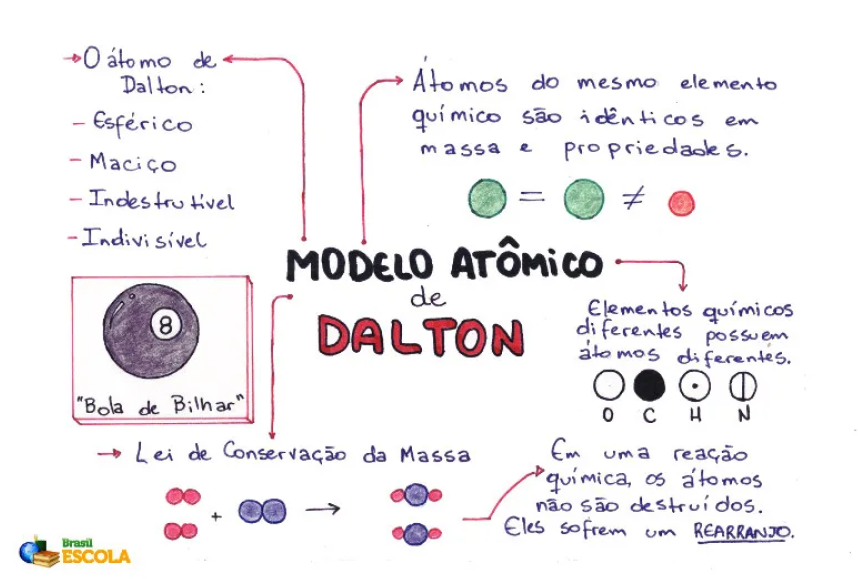 O átomo de
Dalton:
- Esférico
- Maciço
- Indestrutível
- Indivisível
8
"Bola de Bilhar"
Átomos do mesmo elemento
químico são idênticos em
massa e propriedades.
= ≠
MODELO ATÔMICO
de
DALTON
Elementos químicos
diferentes possuem
átomos diferentes.
O C H N
Lei de Conservação da Massa
+ →
Em uma reação
química, os átomos
não são destruídos.
Eles sofrem um REARRANJO.
Brasil
ESCOLA